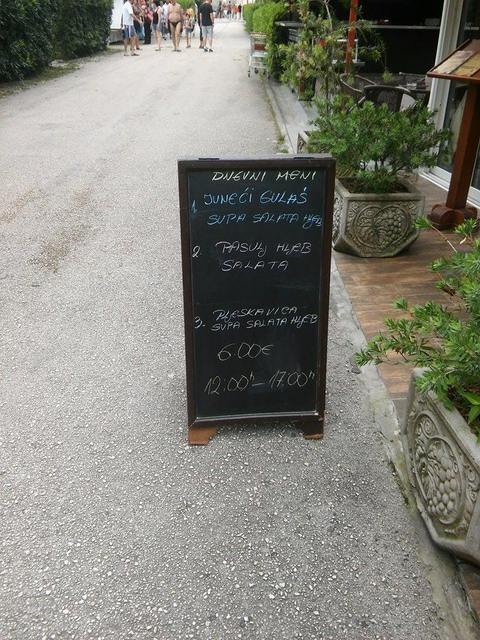 DNEVNI MENI
1. JUNEĆI GULAŠ
SUPA SALATA HLJEB
2. PASULJ HLJEB
SALATA
3. PLJESKAVICA
SUPA SALATA HLJEB
6.00€
12:00h - 17:00h